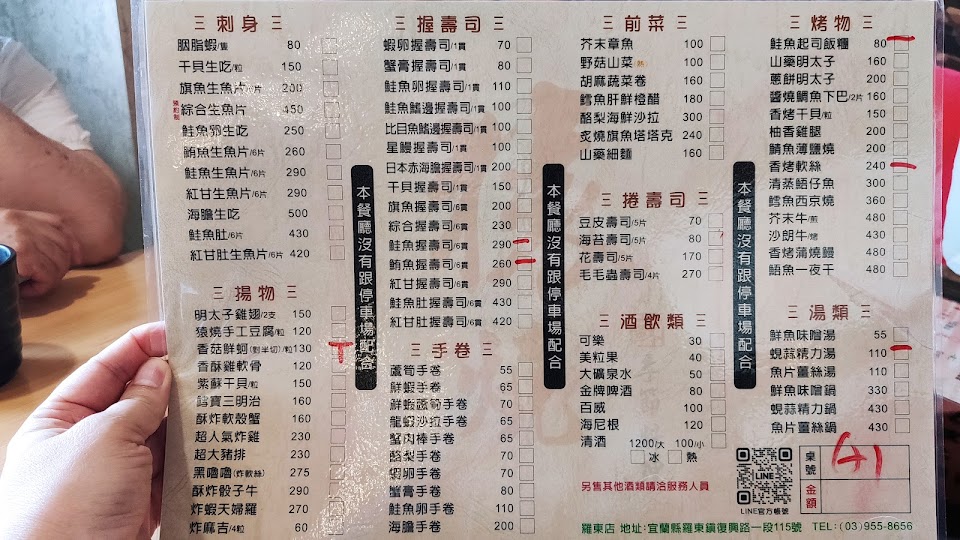 三 刺身 三
胭脂蝦/隻 80
干貝生吃/粒 150
旗魚生魚片/6片 200
綜合生魚片 450
鮭魚卵生吃 250
鮪魚生魚片/6片 260
鮭魚生魚片/6片 290
紅甘生魚片/6片 290
海膽生吃 500
鮭魚肚/6片 430
紅甘肚生魚片/6片 420
三 揚物 三
明太子雞翅/2支 150
猿燒手工豆腐/粒 120
香菇鮮蚵(對半切)/粒 130
香酥雞軟骨 120
紫蘇干貝/粒 150
鱈寶三明治 160
酥炸軟殼蟹 160
超人氣炸雞 230
超大豬排 230
黑嚕嚕(炸軟絲) 275
酥炸骰子牛 290
炸蝦天婦羅 270
炸麻吉/4粒 60
本餐廳沒有跟停車場配合
三 握壽司 三
蝦卵握壽司/1貫 70
蟹膏握壽司/1貫 70
鮭魚卵握壽司/1貫 110
鮭魚鰭邊握壽司/1貫 100
比目魚鰭邊握壽司/1貫 100
星鰻握壽司/1貫 100
日本赤海膽握壽司/1貫 200
干貝握壽司/1貫 150
旗魚握壽司/6貫 200
綜合握壽司/6貫 230
鮭魚握壽司/6貫 290
鮪魚握壽司/6貫 260
紅甘握壽司/6貫 290
鮭魚肚握壽司/6貫 430
紅甘肚握壽司/6貫 420
三 手卷 三
蘆筍手卷 55
鮮蝦手卷 65
鮮蝦蘆筍手卷 70
龍蝦沙拉手卷 65
蟹肉棒手卷 60
酪梨手卷 70
蝦卵手卷 70
蟹膏手卷 80
鮭魚卵手卷 110
海膽手卷 200
本餐廳沒有跟停車場配合
三 前菜 三
芥末章魚 100
野菇山菜(熱) 100
胡麻蔬菜卷 160
鱈魚肝鮮橙醋 180
酪梨海鮮沙拉 300
炙燒旗魚塔塔克 240
山藥細麵 160
三 捲壽司 三
豆皮壽司/5片 70
海苔壽司/5片 80
花壽司/5片 170
毛毛蟲壽司/4片 270
三 酒飲類 三
可樂 30
美粒果 40
大礦泉水 50
金牌啤酒 80
百威 100
海尼根 100
清酒 1200/大 100/小
冰 熱
另售其他酒類請洽服務人員
本餐廳沒有跟停車場配合
三 烤物 三
鮭魚起司飯糰 80
山藥明太子 160
蔥餅明太子 200
醬燒鯛魚下巴/2片 160
香烤干貝/粒 150
柚香雞腿 200
鯖魚薄鹽燒 200
香烤軟絲 240
清蒸鱈仔魚 300
鱈魚西京燒 360
芥末牛/煎 480
沙朗牛/烤 480
香烤蒲燒鰻 480
鮚魚一夜干 480
三 湯類 三
鮮魚味噌湯 55
蜆蒜精力湯 110
魚片薑絲湯 110
鮮魚味噌鍋 330
蜆蒜精力鍋 430
魚片薑絲鍋 430
LINE
LINE官方帳號
桌號 G1
金額
羅東店 地址:宜蘭縣羅東鎮復興路一段115號 TEL:(03)955-8656